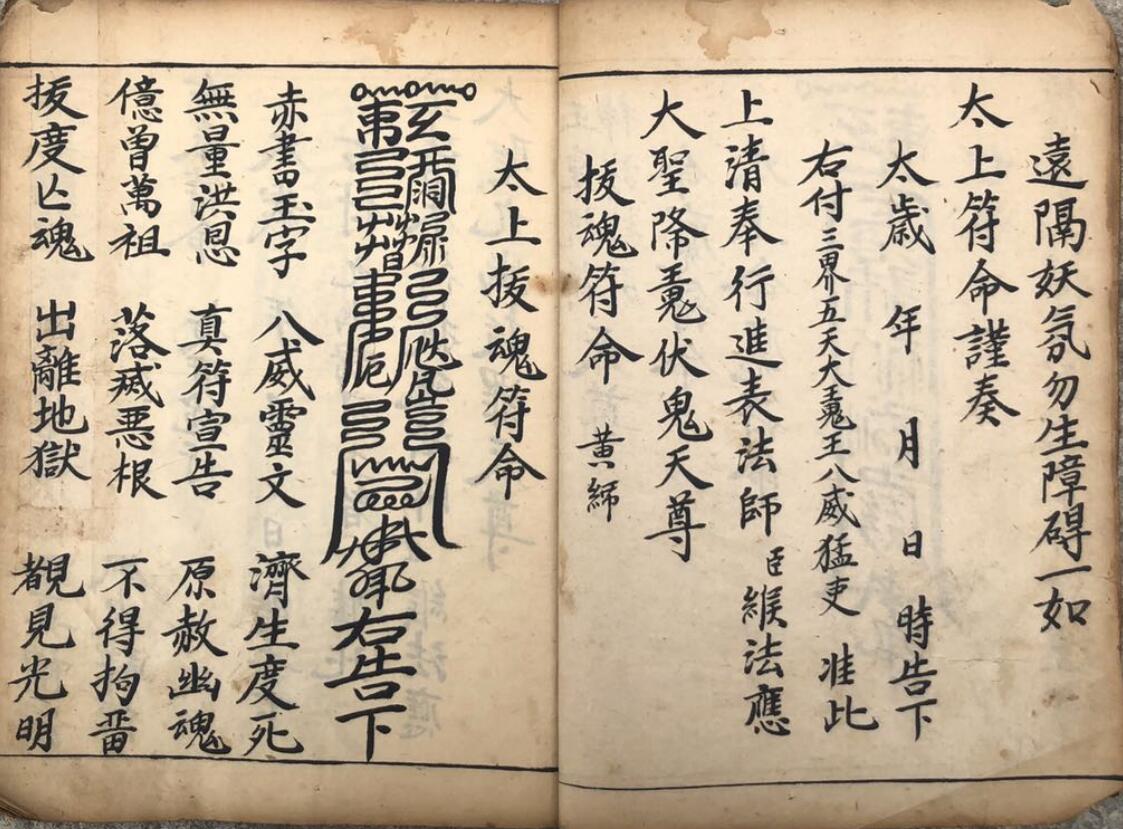 遠隔妖氛勿生障碍一如
太上符命謹奏
太歲 年 月 日 時告下
右付三界五天大魔王八威猛吏 准此
上清奉行進表法師臣緱法應
大聖降魔伏鬼天尊
拔魂符命 黃締
太上拔魂符命
右告下
赤書玉字 八威靈文 濟生度死
無量洪恩 真符宣告 原赦幽魂
億曾萬祖 落滅惡根 不得拘留
拔度亾魂 出離地獄 覩見光明